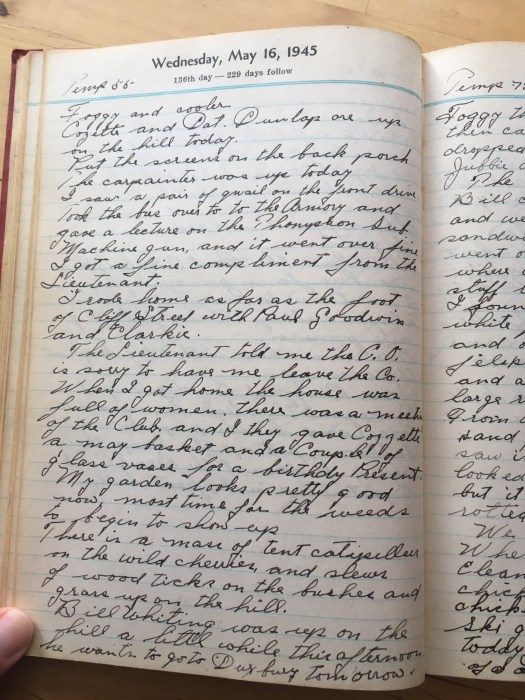 Wednesday, May 16, 1945
136th day — 229 days follow
Temp 55°
Foggy and cooler
Cozette and Dat. Dunlap are up
on the hill today.
Put the screens on the back porch
The carpainter was up today
I saw a pair of quail on the front drive
Took the bus over to to the Armory and
gave a lecture on the Thompson Sub
Machine gun, and it went over fine
I got a fine compliment from the
Lieutenant.
I rode home as far as the foot
of Cliff Street with Paul Goodwin
and Clarkie.
The Lieutenant told me the C.O.
is sorry to have me leave the Co.
When I got home the house was
full of women. there was a meetin
of the Club and I they gave Cozzette
a may basket and a Couple of
glass vases for a birthdy Present.
My garden looks pretty good
now, most time for the weeds
to begin to show up
There is a mass of tent catipillers
on the wild cherries, and slews
of wood ticks on the bushes and
grass up on the hill.
Bill Whiting was up on the
hill a little while this afternoon
he wants to go to Duxbury tomorrow.
Temp 7
Foggy th
then ca
dropped
Jubbie
The
Bill c
and we
sandw
went o
where
stuff
I foun
white
and
and a
large r
Groin
sand
saw i
looked
but it
rotte
We
Whe
Clean
chick
chick
Ski g
today